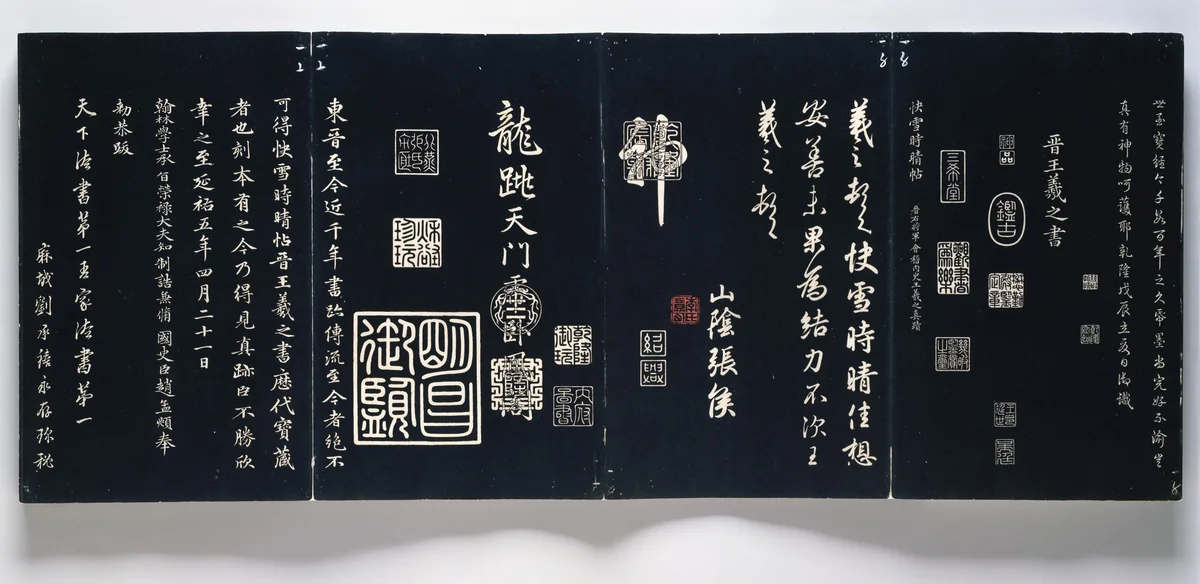 世至寶經今千數百年之久帋墨尚完好不渝豈
真有神物呵護耶乾隆戊辰立夏日御識
晉王羲之書
神品
鑑古
三希堂
快雪時晴帖 晉右將軍會稽內史王羲之真蹟
羲之頓首快雪時晴佳想
安善未果為結力不次王
羲之頓首
山陰張侯
神
紹興
龍跳天門虎臥鳳閣
乾隆御玩
內府圖書
秋壑珍玩
明昌御覽
東晉至今近千年書跡傳流至今者絕不
可得快雪時晴帖晉王羲之書歷代寶藏
者也刻本有之今乃得見真跡臣不勝欣
幸之至延祐五年四月二十一日
翰林學士承旨榮祿大夫知制誥兼脩國史臣趙孟頫奉
勑恭跋
天下法書第一吾家法書第一
麻城劉承禧永存珍秘